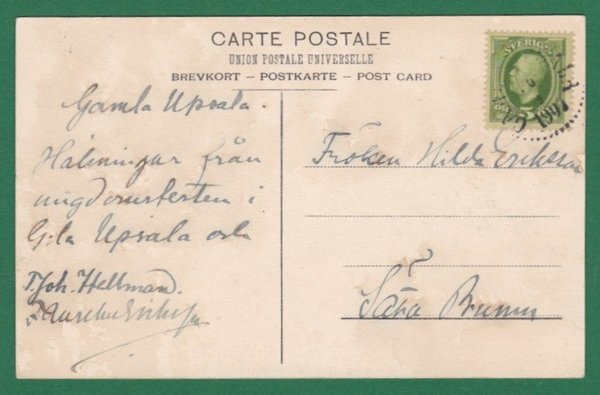 CARTE POSTALE
UNION POSTALE UNIVERSELLE
BREVKORT – POSTKARTE – POST CARD
SVERIGE
1907
Gamla Upsala.
Hälsningar från
ungdomsfesten i
G:la Upsala
T. Joh. Hellman.
Fröken Hilda Eriksson
Sätra Brunn